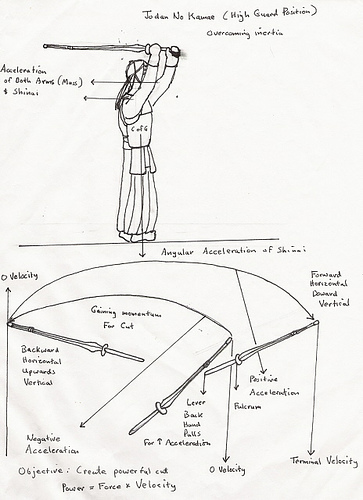 Jodan No Kamae (High Guard Position)
Overcoming inertia
Acceleration
of Both Arms (Mass)
& Shinai
C of G
Angular Acceleration of Shinai
0 Velocity
Gaining momentum
For Cut
Forward
Horizontal
Downward
Vertical
Backward
Horizontal
Upwards
Vertical
Positive
Acceleration
Lever
Back
Hand
Pulls
For ↑ Acceleration
Fulcrum
Negative
Acceleration
0 Velocity
Terminal Velocity
Objective: Create powerful cut
Power = Force x Velocity